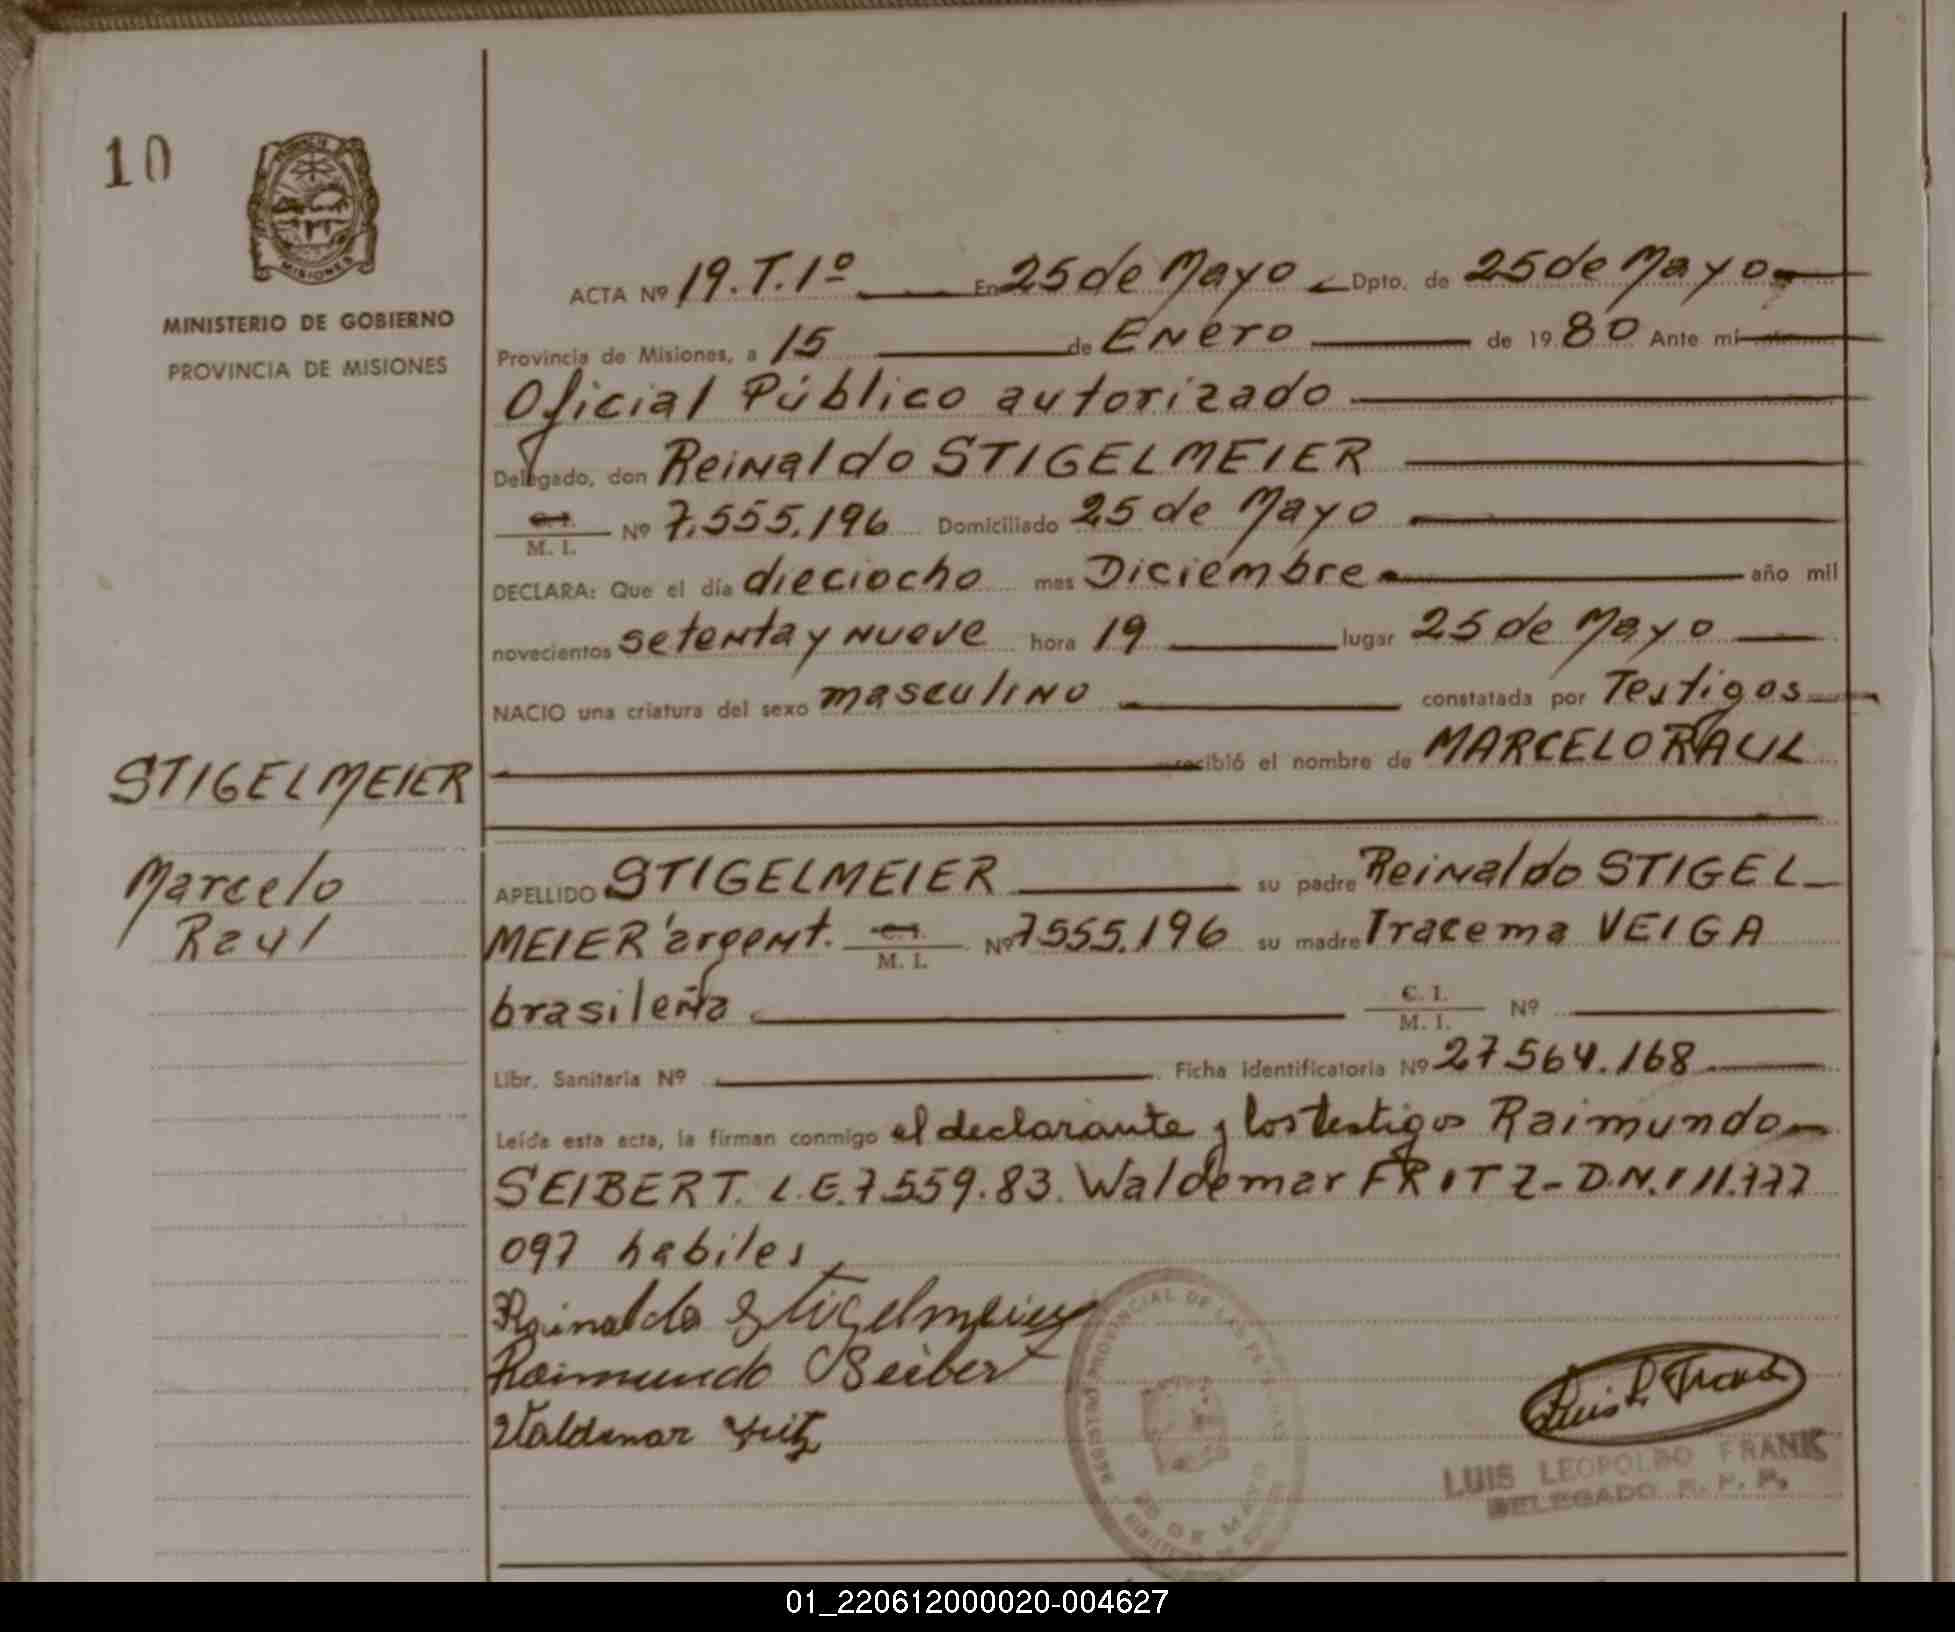 10
MINISTERIO DE GOBIERNO
PROVINCIA DE MISIONES
MISIONES
ACTA Nº 19.T.1º En 25 de Mayo Dpto. de 25 de Mayo
Provincia de Misiones, a 15 de Enero de 1980 Ante mí
Oficial Público autorizado
Delegado, don Reinaldo STIGELMEIER
C. I. / M. I. Nº 7.555.196 Domiciliado 25 de Mayo
DECLARA: Que el día dieciocho mes Diciembre año mil
novecientos setenta y nueve hora 19 lugar 25 de Mayo
NACIO una criatura del sexo masculino constatada por Testigos
recibió el nombre de MARCELO RAUL
STIGELMEIER
Marcelo
Raul
APELLIDO STIGELMEIER su padre Reinaldo STIGEL
MEIER argent. C. I. / M. I. Nº 7555.196 su madre Iracema VEIGA
brasileña C. I. / M. I. Nº
Libr. Sanitaria Nº Ficha identificatoria Nº 27564.168
Leída esta acta, la firman conmigo el declarante y los testigos Raimundo
SEIBERT. L.E.7.559.83. Waldemar FRITZ-D.N.I 11.777
097 habiles
Reinaldo Stigelmeier
Raimundo Seibert
Valdemar Fritz
REGISTRO PROVINCIAL DE LAS
25 DE MAYO
Luis L. Frank
LUIS LEOPOLDO FRANK
DELEGADO R. P. P.
01_220612000020-004627